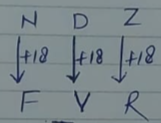 N D Z
+18 +18 +18
F V R